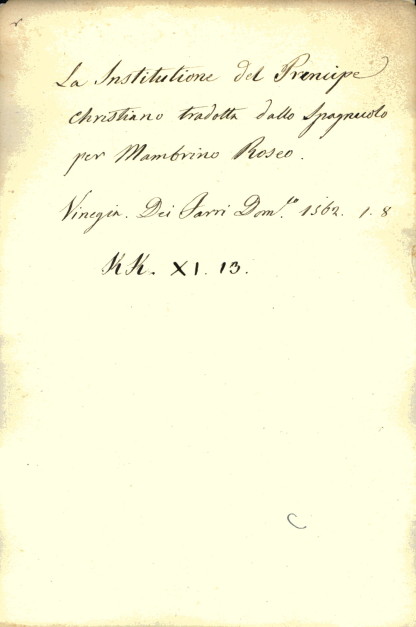 La Institutione del Prencipe
christiano tradotta dallo Spagnuolo
per Mambrino Roseo.
Vinegia. Dei Farri Dom.co 1562. 1. 8
KK. XI. 13.
C